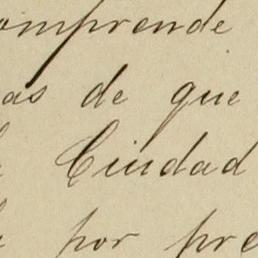 omprende
as de que
Ciudad
por pre